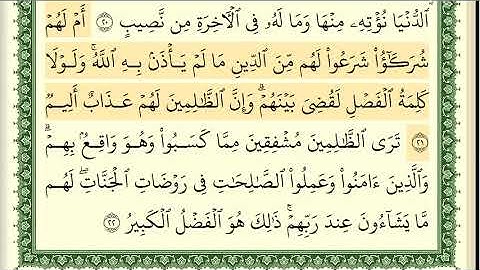 ٱلدُّنْيَا نُؤْتِهِۦ مِنْهَا وَمَا لَهُۥ فِى ٱلْأَخِرَةِ مِن نَّصِيبٍ ٢٠ أَمْ لَهُمْ
شُرَكَٰٓؤُا۟ شَرَعُوا۟ لَهُم مِّنَ ٱلدِّينِ مَا لَمْ يَأْذَنۢ بِهِ ٱللَّهُ ۚ وَلَوْلَا
كَلِمَةُ ٱلْفَصْلِ لَقُضِىَ بَيْنَهُمْ ۗ وَإِنَّ ٱلظَّٰلِمِينَ لَهُمْ عَذَابٌ أَلِيمٌ
٢١ تَرَى ٱلظَّٰلِمِينَ مُشْفِقِينَ مِمَّا كَسَبُوا۟ وَهُوَ وَاقِعٌۢ بِهِمْ ۗ
وَٱلَّذِينَ ءَامَنُوا۟ وَعَمِلُوا۟ ٱلصَّٰلِحَٰتِ فِى رَوْضَاتِ ٱلْجَنَّاتِ ۖ لَهُم
مَّا يَشَآءُونَ عِندَ رَبِّهِمْ ۚ ذَٰلِكَ هُوَ ٱلْفَضْلُ ٱلْكَبِيرُ ٢٢